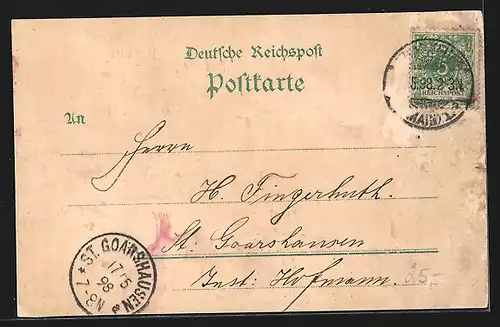 Deutsche Reichspost
Postkarte
5
REICHSPOST
5.98. 2-3N
(MAIN)
An
Herrn
H. Fingerhuth.
St. Goarshausen
Inst: Hofmann.
25,-
* ST. GOARSHAUSEN *
17 5
98